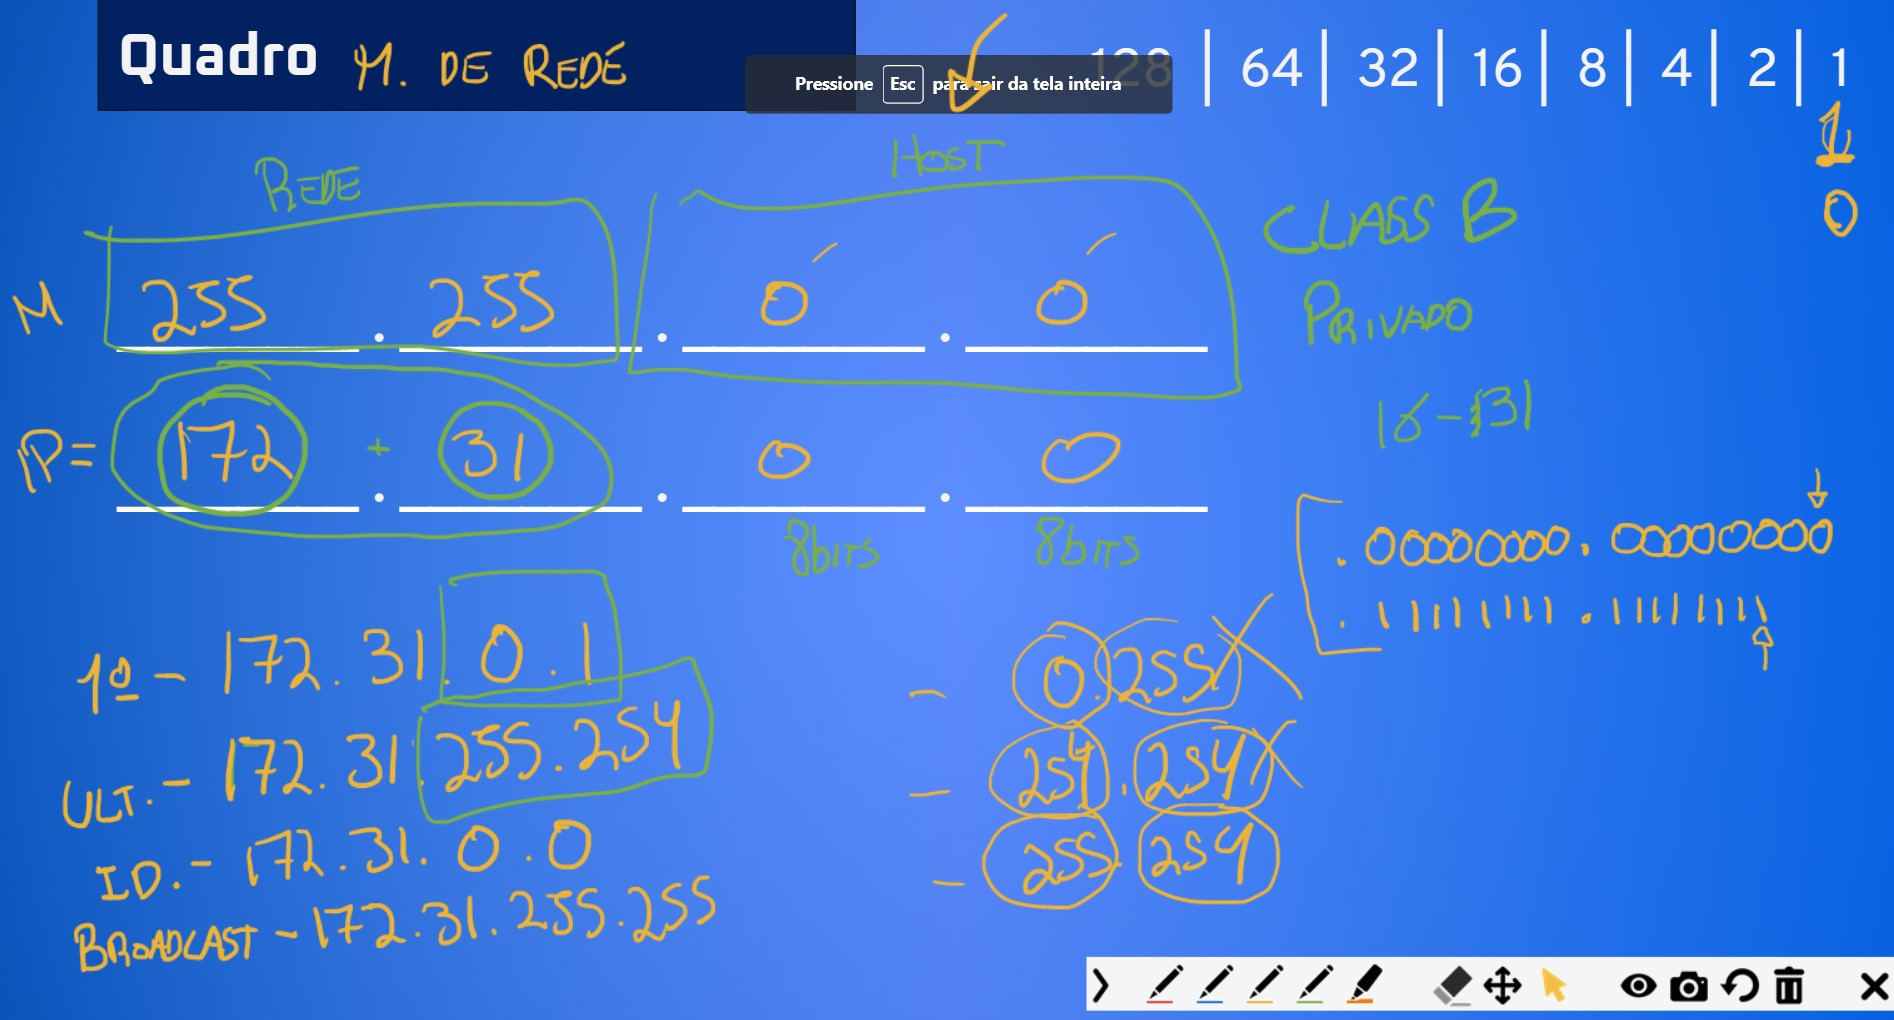 Quadro M. DE REDE
Pressione Esc para sair da tela inteira
128 | 64 | 32 | 16 | 8 | 4 | 2 | 1
1
0
REDE
HOST
CLASS B
PRIVADO
16-31
M 255 . 255 . 0 . 0
IP= 172 + . 31 . 0 . 0
8bits 8bits
.00000000.00000000
.11111111.11111111
1º - 172.31.0.1
ULT. - 172.31.255.254
ID. - 172.31.0.0
BROADCAST - 172.31.255.255
- 0.255
- 254.254
- 255.254